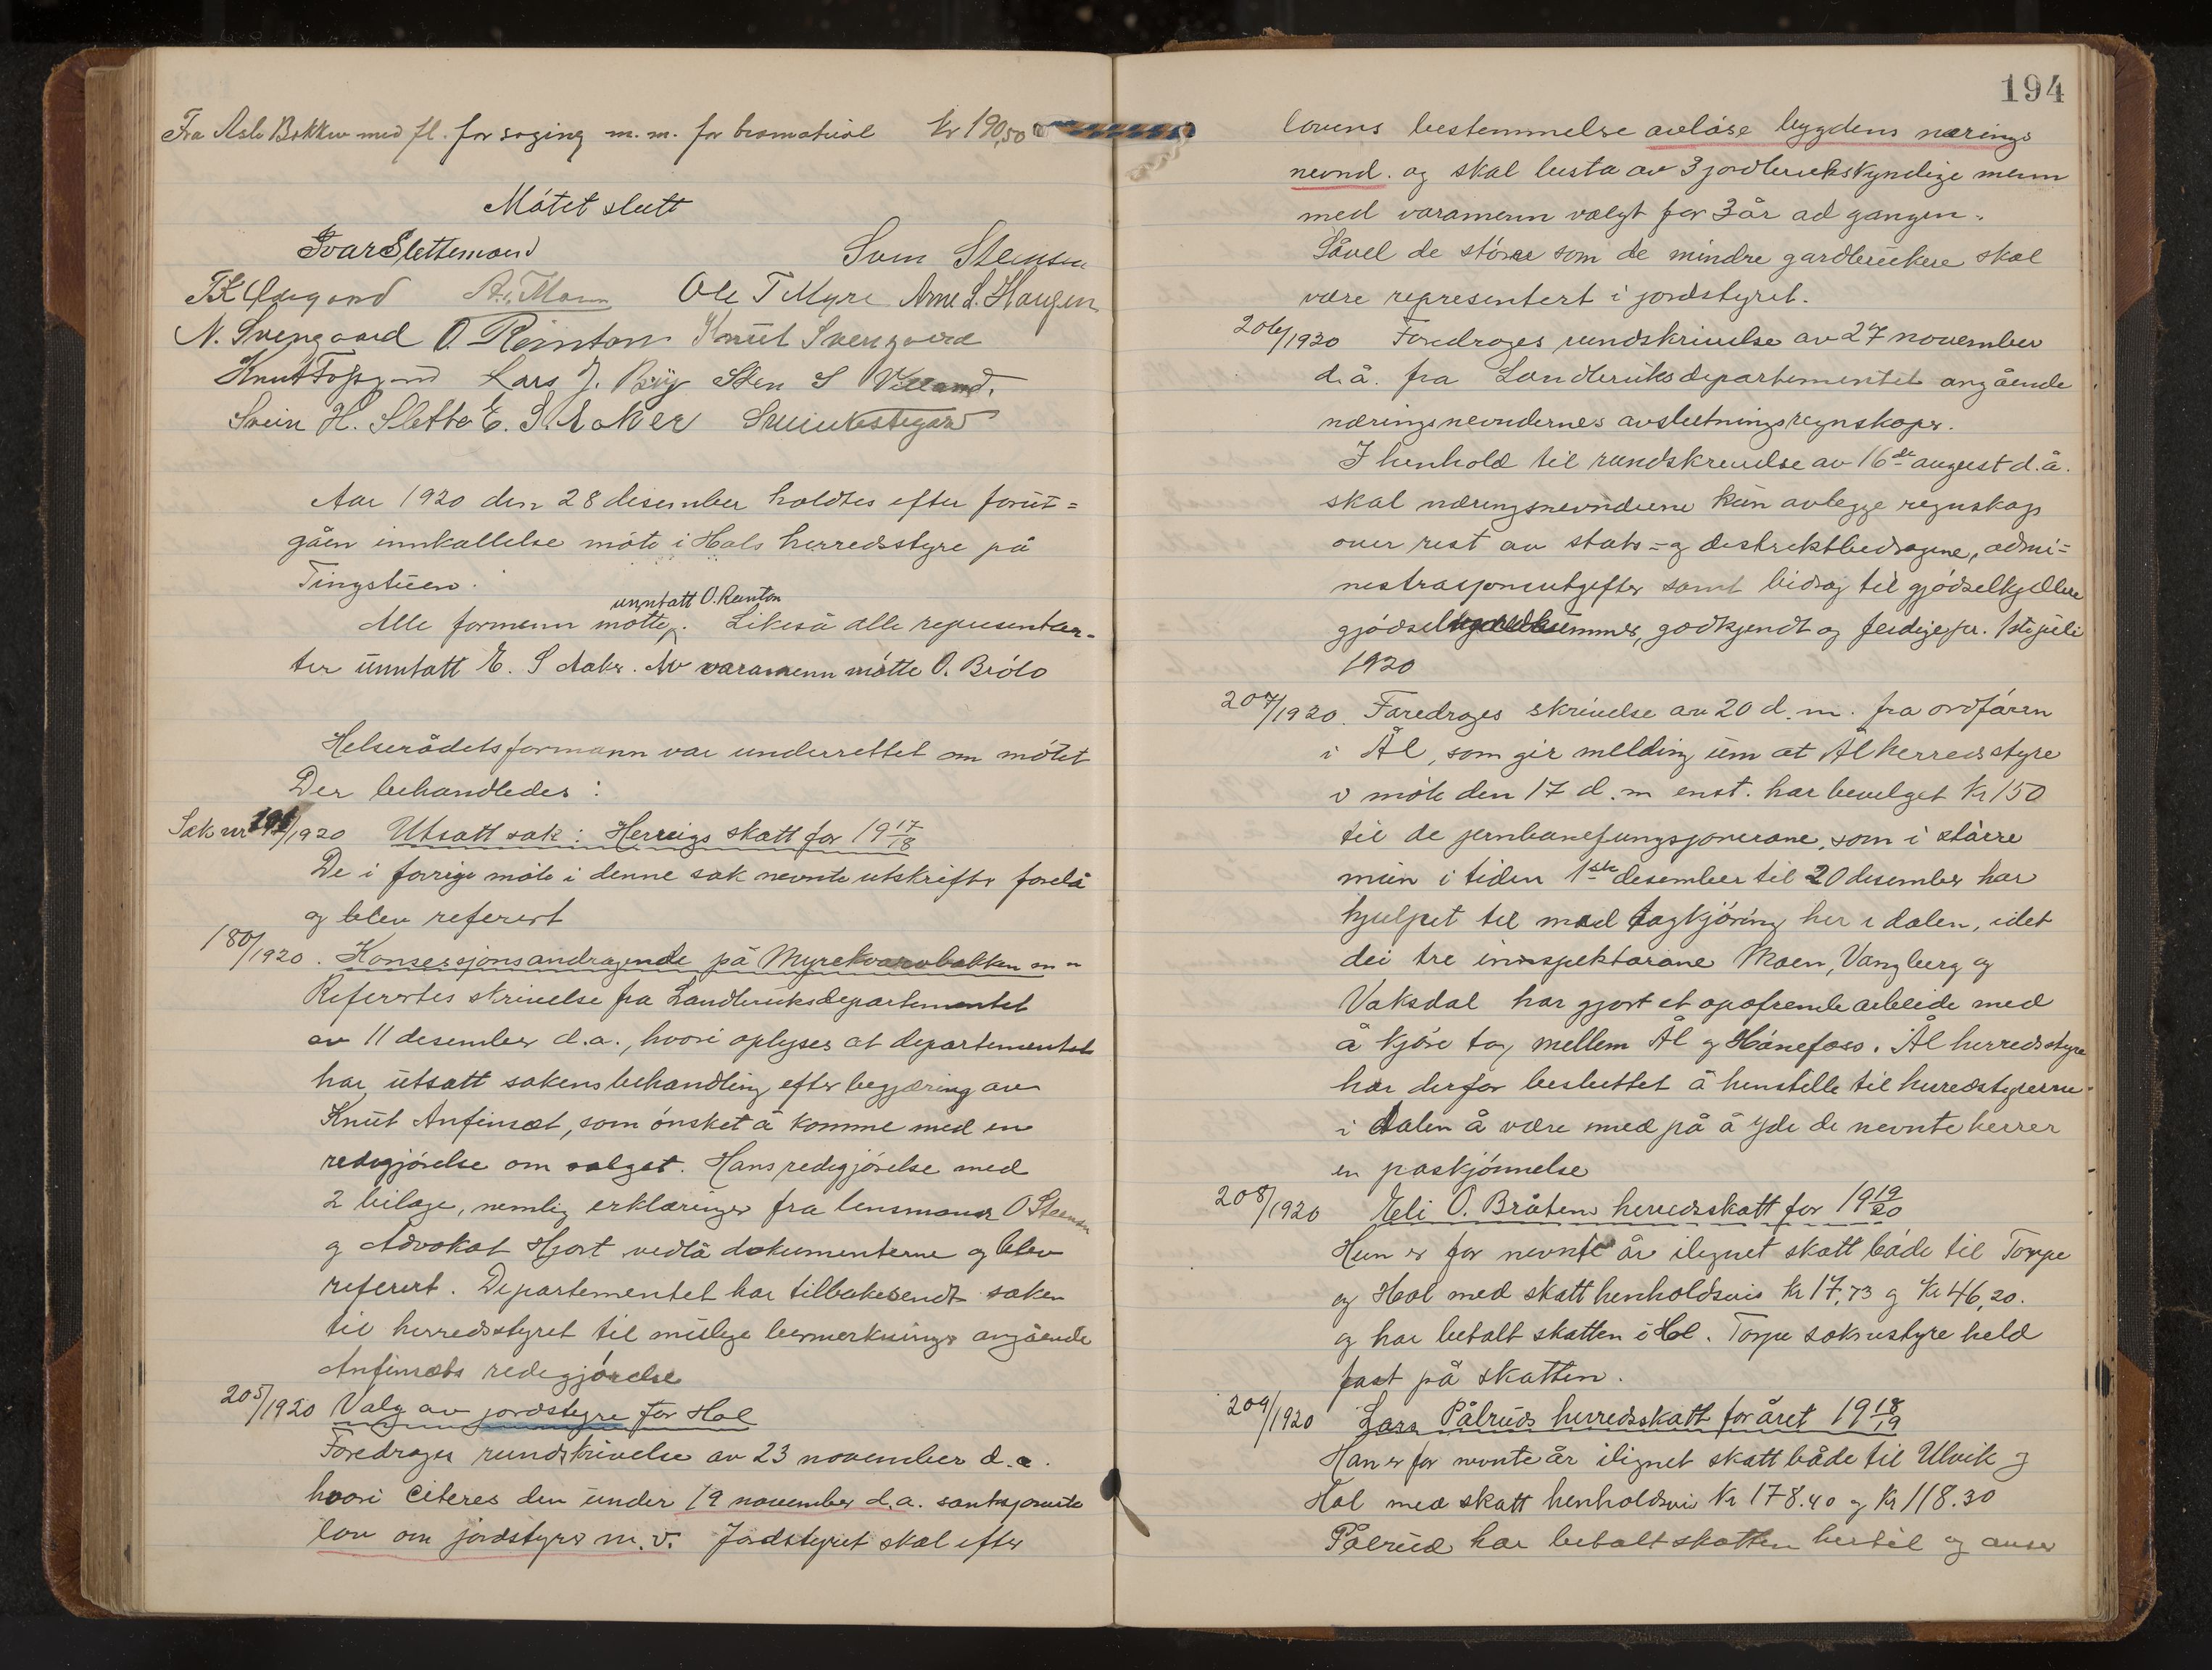 Fra Asle Bakken med fl. for saging m.m. for bromatrial kr 190,50
Mötet slutt
Ivar Slettemoend Svein Stensen
TK Ødegaard A. Moen Ole T Myre Arne L. Haugen
N. Svengaard O. Reinton Knut Svengaard
Knut Tofsgaard Lars J. Sten S Villand.
Svein H. Sletto E. S Aaker
Aar 1920 den 28 desember holdtes efter forut=
gåen innkallelse möte i Hols herredsstyre på
Tingstuen.
unntatt O. Reinton
Alle formenn mötte. Likeså alle representan-
ter unntatt E. S Aaker. Av varamenn mötte O. Bröto
Helserådets formann var underrettet om mötet
Der behandledes:
Sak nr /1920 Utsatt sak: Herreigs skatt for 19 17/18
De i forrige möte i denne sak nevnte utskrifter forelå
og blev referert
180/1920. Konsesjonsandragende på Myrekvarvbakken m m
Referertes skrivelse fra Landbruksdepartementet
av 11 desember d.a., hvori oplyses at departementet
har utsatt sakens behandling efter begjæring av
Knut Anfinset, som önsket å komme med en
redegjörelse om salget. Hans redegjörelse med
2 bilage, nemlig erklæringer fra lensmann O Stensen
og Advokat Hjort vedlå dokumenterne og blev
referert. Departementet har tilbakesendt saken
til herredsstyret til mulige bemerkninger angående
Anfinsets redegjörelse
205/1920 Valg av jordstyre for Hol
Foredroges rundskrivelse av 23 november d.a.
hvori citeres den under 19 november d.a. sanksjonerte
lov om jordstyre m.v. Jordstyret skal efter
194
lovens bestemmelse avlöse bygdens nærings
nevnd. og skal besta av 3 jordbrukskyndige menn
med varamenn valgt for 3 år ad gangen.
Såvel de större som de mindre gardbrukere skal
være representert i jordstyret.
206/1920 Foredroges rundskrivelse av 27 november
d.å. fra Landbruksdepartementet angående
næringsnevndernes avslutningsregnskaper.
I henhold til rundskrivelse av 16de august d.å.
skal næringsnevnderne kun avlegge regnskap
over rest av stats= og distriktbidragene, admi=
nestrasjonsutgifter samt bidrag til gjödselkjellere
gjödsel, godkjendt og ferdige pr. 1ste juli
1920
207/1920. Foredroges skrivelse av 20 d.m. fra ordföreren
i Ål, som gir melding um at Ål herredsstyre
i möte den 17 d.m enst. har bevilget Kr 150
til de jernbanefungsjonerane, som i större
mun i tiden 1ste desember til 20 desember har
hjulpet til med togkjöring her i dalen, idet
dei tre innspektörane Moen, Vangberg og
Vaksdal har gjort et opofrende arbeide med
å kjöre tog mellem Ål og Hönefoss. Ål herredsstyre
har derfor besluttet å henstille til herredstyrerne
i dalen å være med på å yde de nevnte herrer
en paskjönnelse
208/1920 Eli O. Bråtens herredsskatt for 19 19/20
Hun er for nevnte år ilignet skatt både til Torpe
og Hol med skatt henholdsvis Kr 17,73 og Kr 46,20.
og har betalt skatten i Hol. Torpe soknestyre held
fast på skatten.
209/1920 Lars Pålruds herredsskatt for året 19 18/19
Han er for nevnte år ilignet skatt både til Ulvik og
Hol med skatt henholdsvis Kr 178.40 og Kr 118.30
Pålrud har betalt skatten hertil og anser